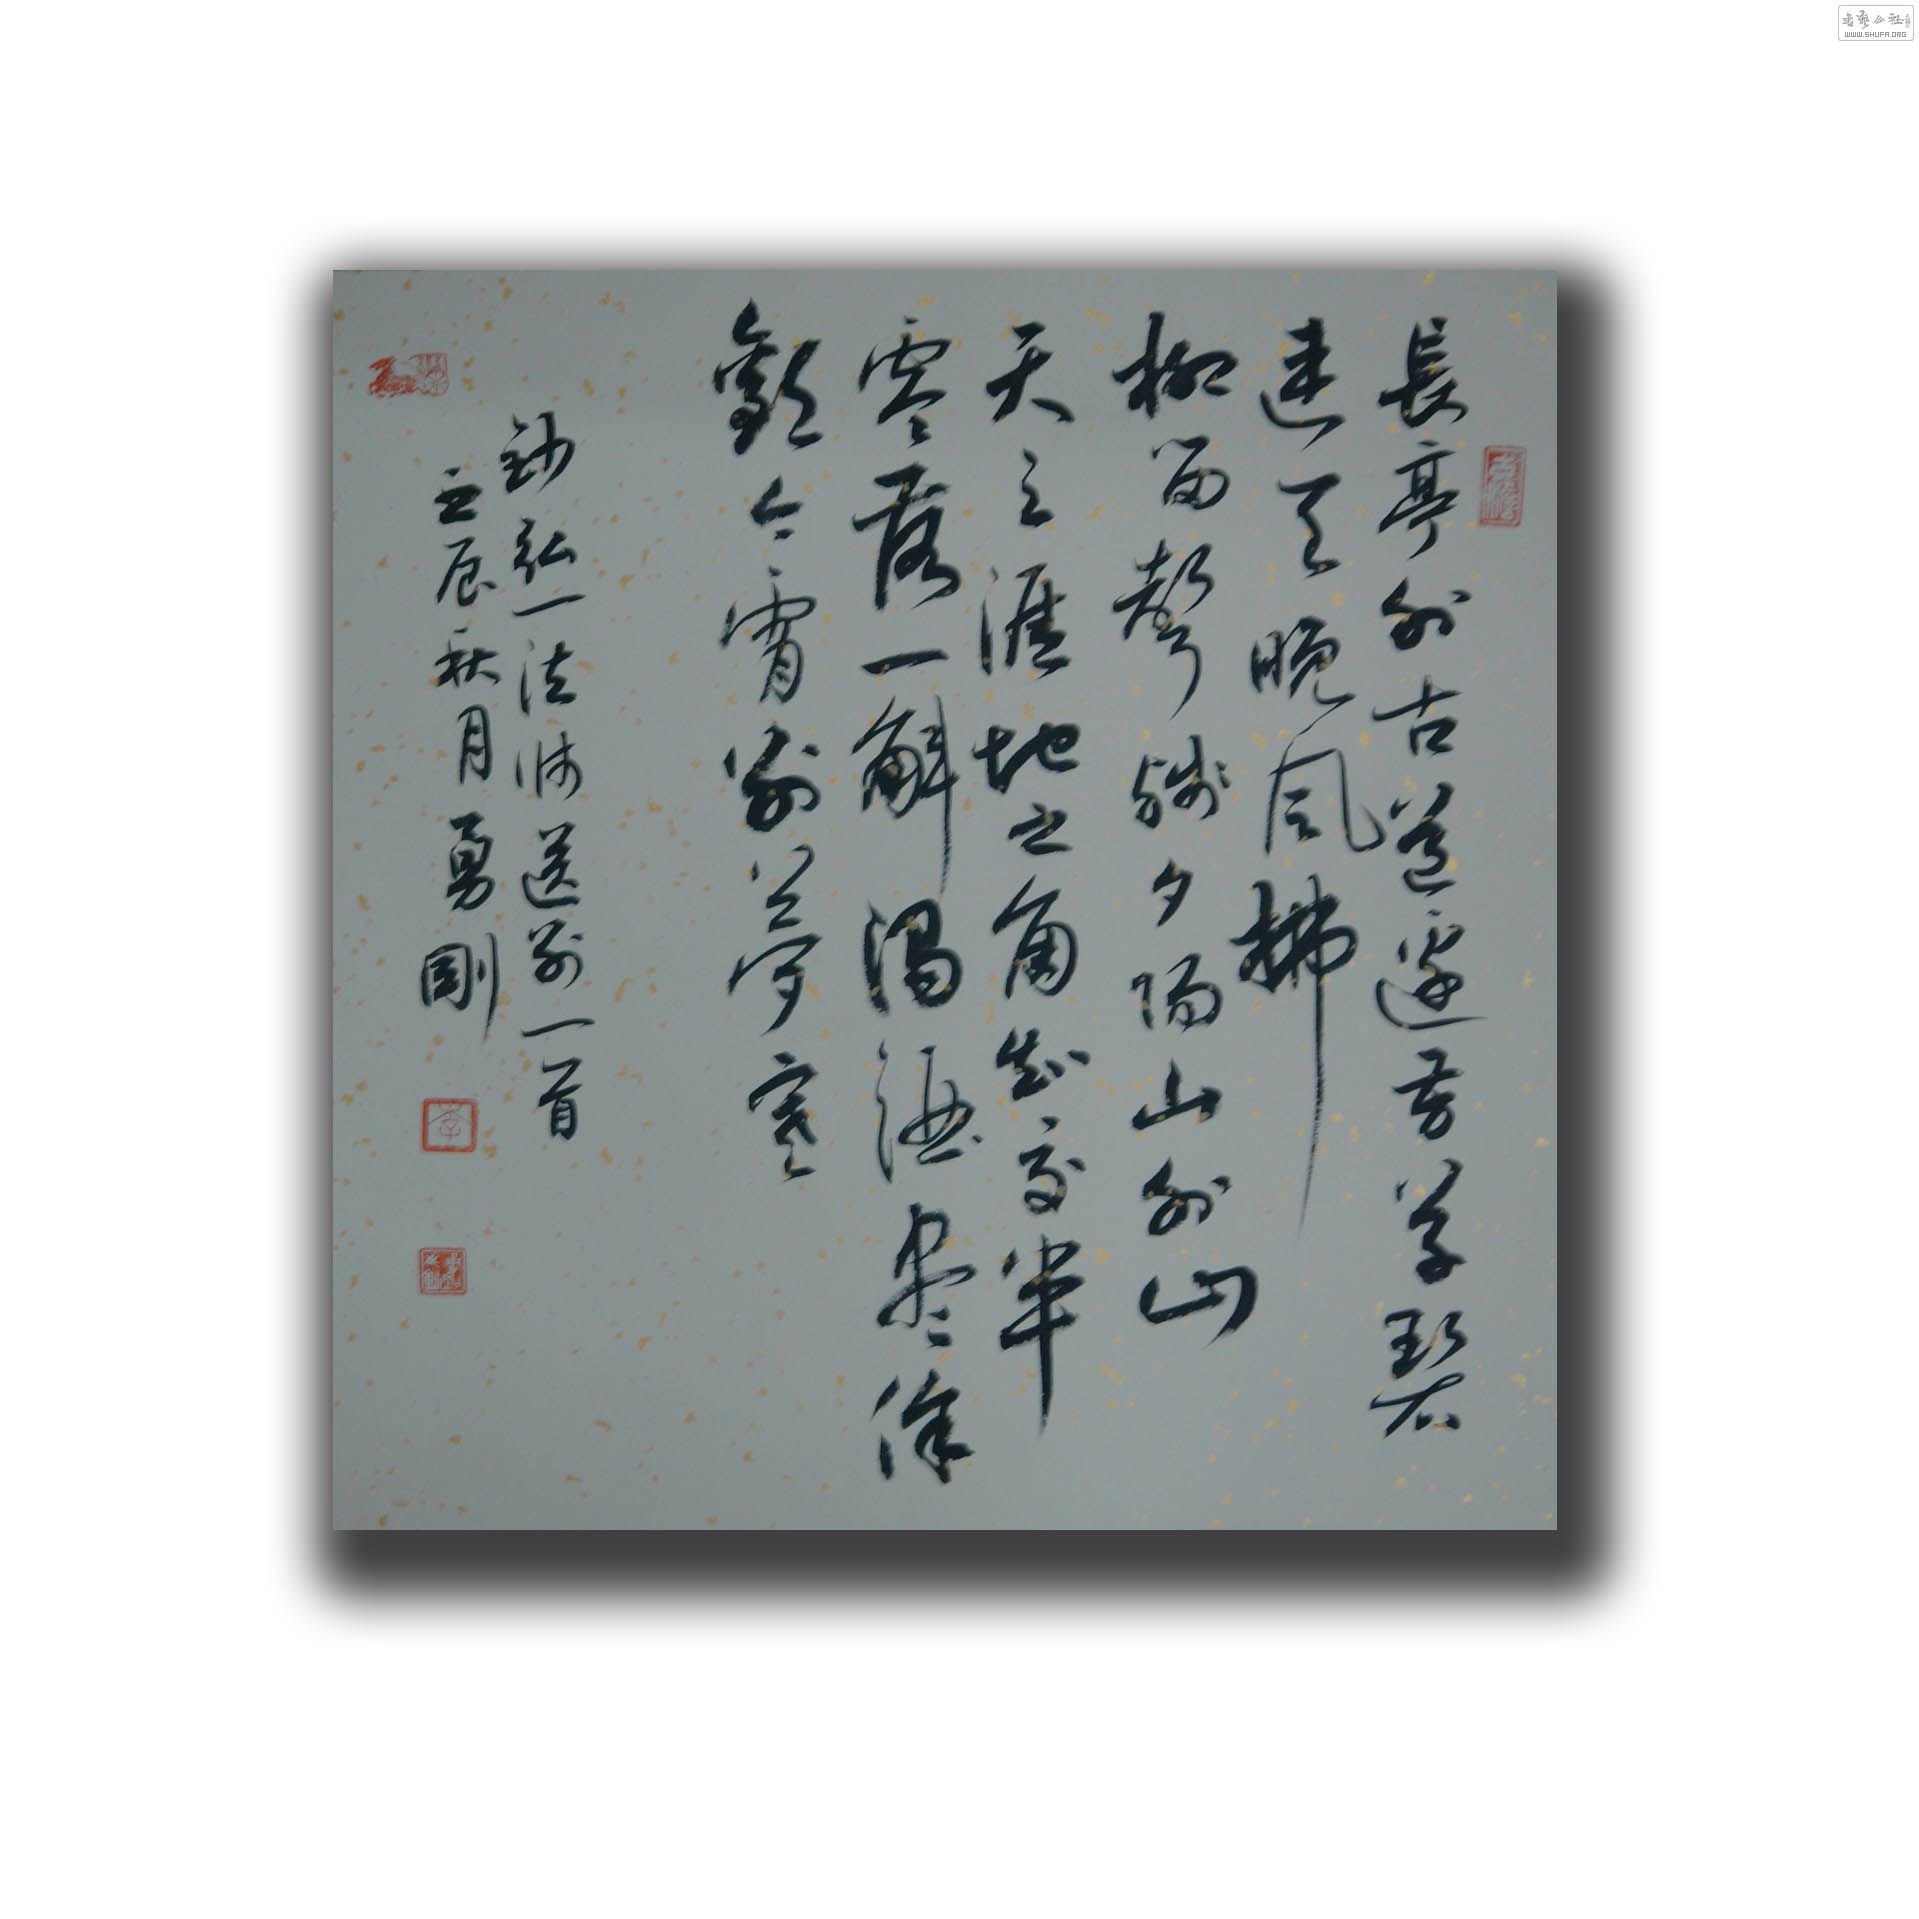 長亭外古道邊芳草碧
連天晚風拂
柳笛聲殘夕陽山外山
天之涯地之角知交半
零落一斛濁酒盡餘
歡今宵別夢寒
鈔弘一法师送别一首
壬辰秋月勇剛
WWW.SHUFA.ORG